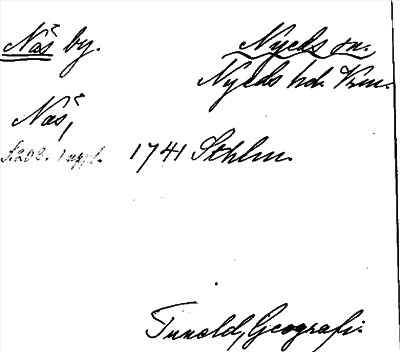 Näs by. Nyeds sn.
Nyeds hd. Vrm.
Näs,
s. 202. suppl. 1741 Sthlm.
Tuneld, Geografi.